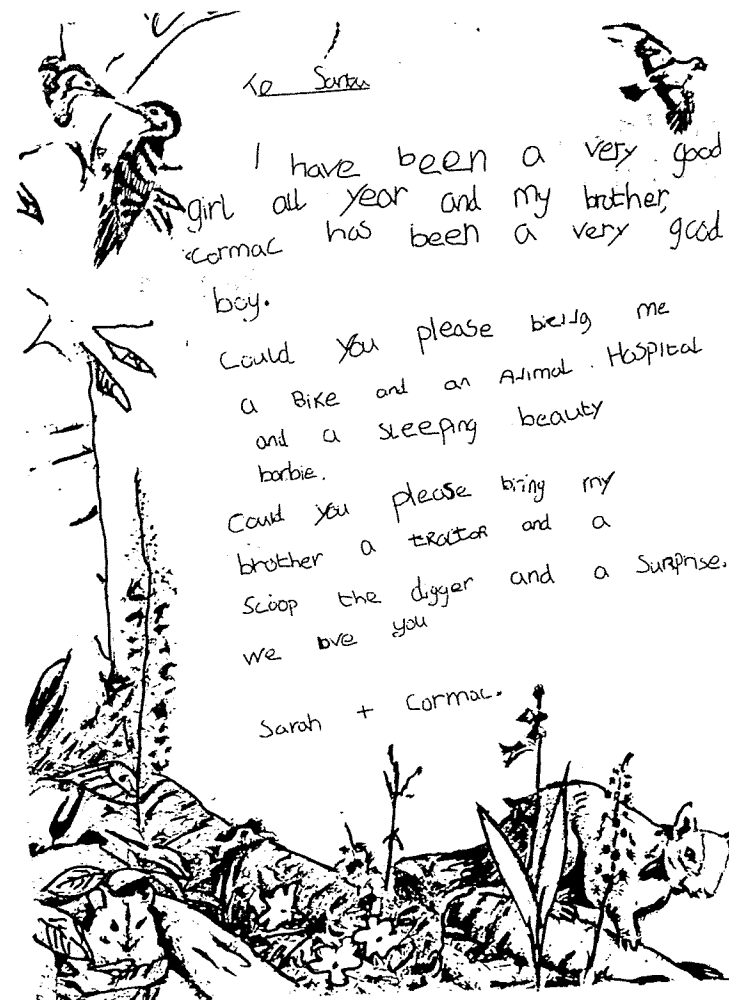 To Santa
I have been a very good
girl all year and my brother,
Cormac has been a very good
boy.
Could you please bring me
a Bike and an Animal Hospital
and a sleeping beauty
barbie.
Could you please bring my
brother a tractor and a
Scoop the digger and a Surprise.
we love you
Sarah + Cormac.